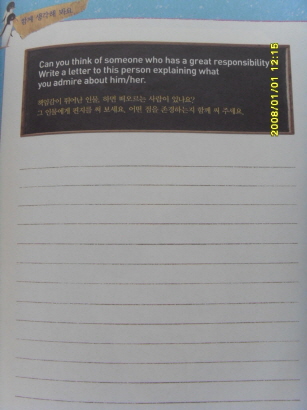 함께 생각해 봐요
Can you think of someone who has a great responsibility?
Write a letter to this person explaining what
you admire about him/her.
책임감이 뛰어난 인물, 하면 떠오르는 사람이 있나요?
그 인물에게 편지를 써 보세요. 어떤 점을 존경하는지 함께 써 주세요.
2008/01/01 12:15